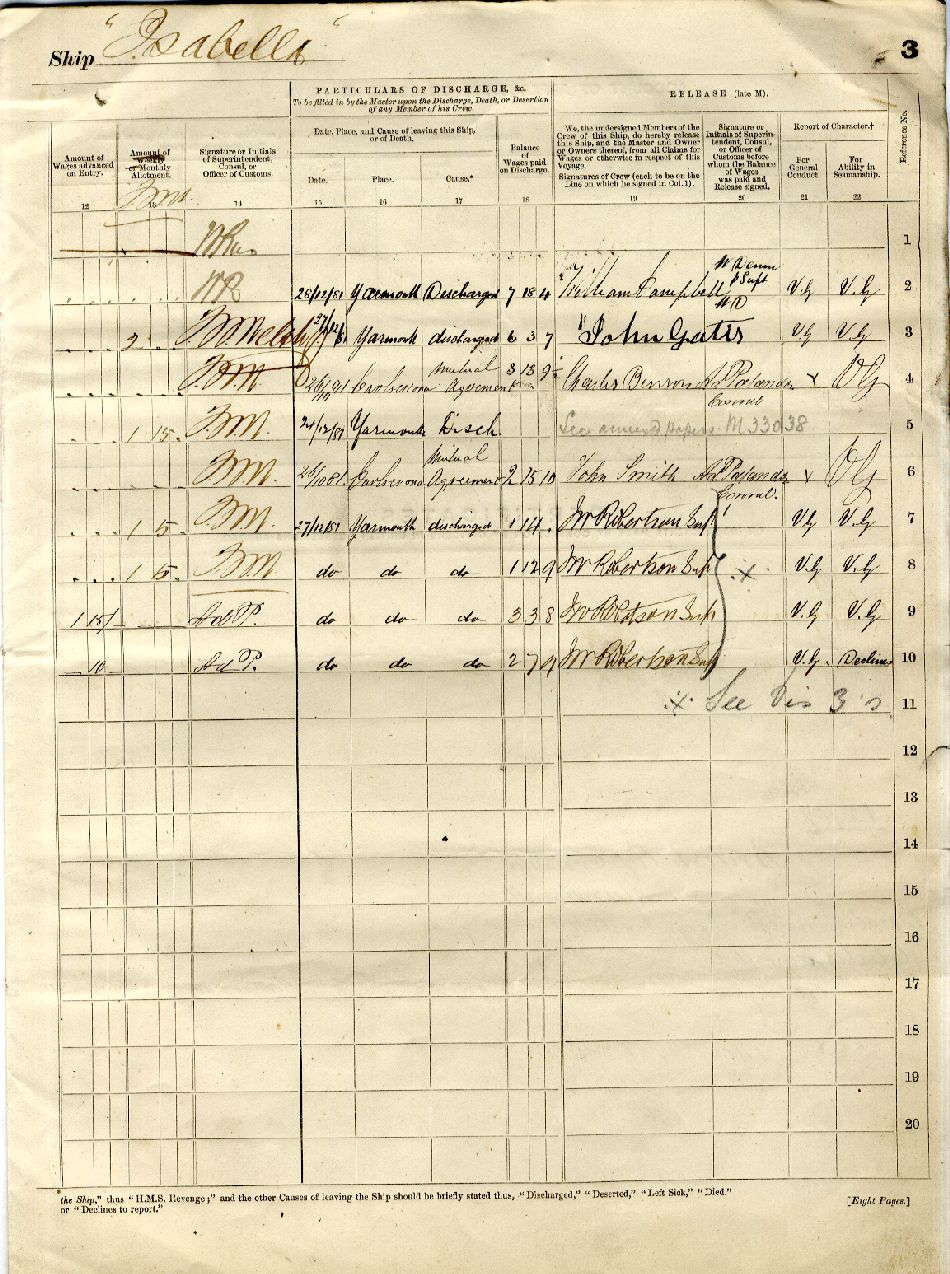 Ship "Isabella" 3
PARTICULARS OF DISCHARGE, &c.
To be filled in by the Master upon the Discharge, Death, or Desertion of any Member of his Crew.
RELEASE (late M).
Reference No.
Amount of Wages advanced on Entry.
Amount of Weekly or Monthly Allotment.
Signature or Initials of Superintendent, Consul, or Officer of Customs.
Date, Place, and Cause of leaving this Ship, or of Death.
Date. Place. Cause.*
Balance of Wages paid on Discharge.
We, the undersigned Members of the Crew of this Ship, do hereby release this Ship, and the Master and Owner or Owners thereof, from all Claims for Wages or otherwise in respect of this Voyage.
Signatures of Crew (each to be on the Line on which he signed in Col. 1).
Signature or Initials of Superintendent, Consul, or Officer of Customs before whom the Balance of Wages was paid and Release signed.
Report of Character.†
For General Conduct.
For Ability in Seamanship.
12 13 14 15 16 17 18 19 20 21 22
1
WR 28/12/81 Yarmouth Discharged 7 18 4 William Campbell V.G V.G 2
2 Yarmouth discharged 6 3 7 John Gates V.G V.G 3
Mutual Agreement 3 13 9 Charles Benson 4
1 15 Yarmouth Disch. See amended papers M 33038 5
Mutual Agreement 2 15 10 John Smith 6
1 5 27/12/81 Yarmouth discharged 1 14 . W Robertson Supt V.G V.G 7
1 5 do do do 1 12 9 W Robertson Supt V.G V.G 8
1 15/ And P. do do do 3 3 8 W Robertson Supt V.G V.G 9
10 And P. do do do 2 7 9 W Robertson Supt V.G. Declines 10
See Dis 3's 11
12
13
14
15
16
17
18
19
20
the Ship," thus "H.M.S. Revenge;" and the other Causes of leaving the Ship should be briefly stated thus, "Discharged," "Deserted," "Left Sick," "Died."
or "Declines to report." [Eight Pages.]